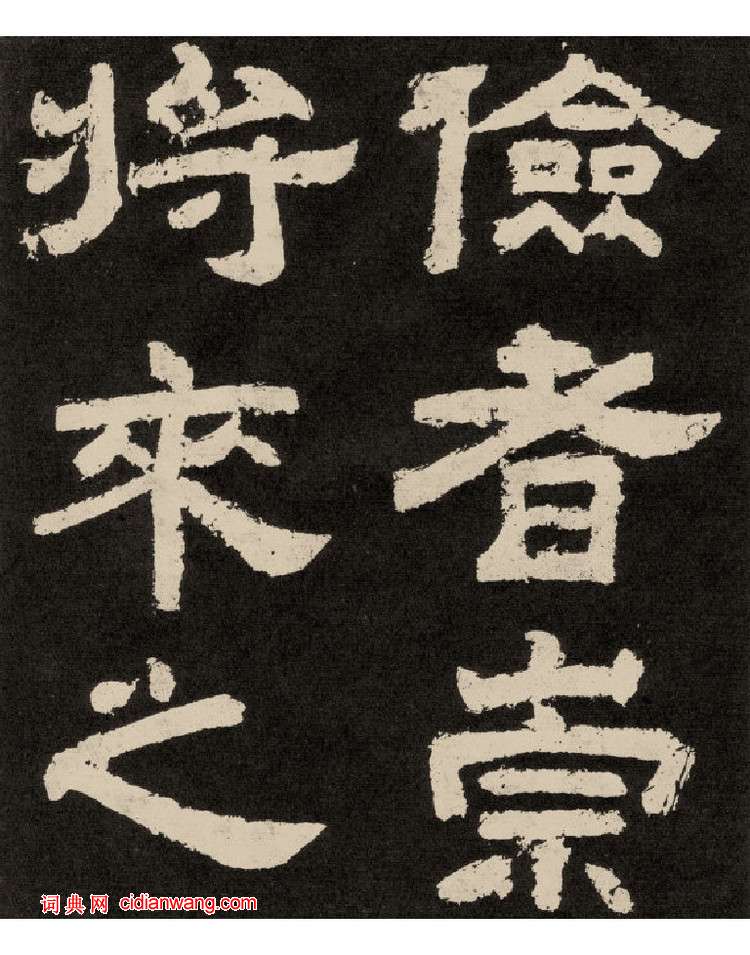 儉者崇
將來之
词典网 cidianwang.com